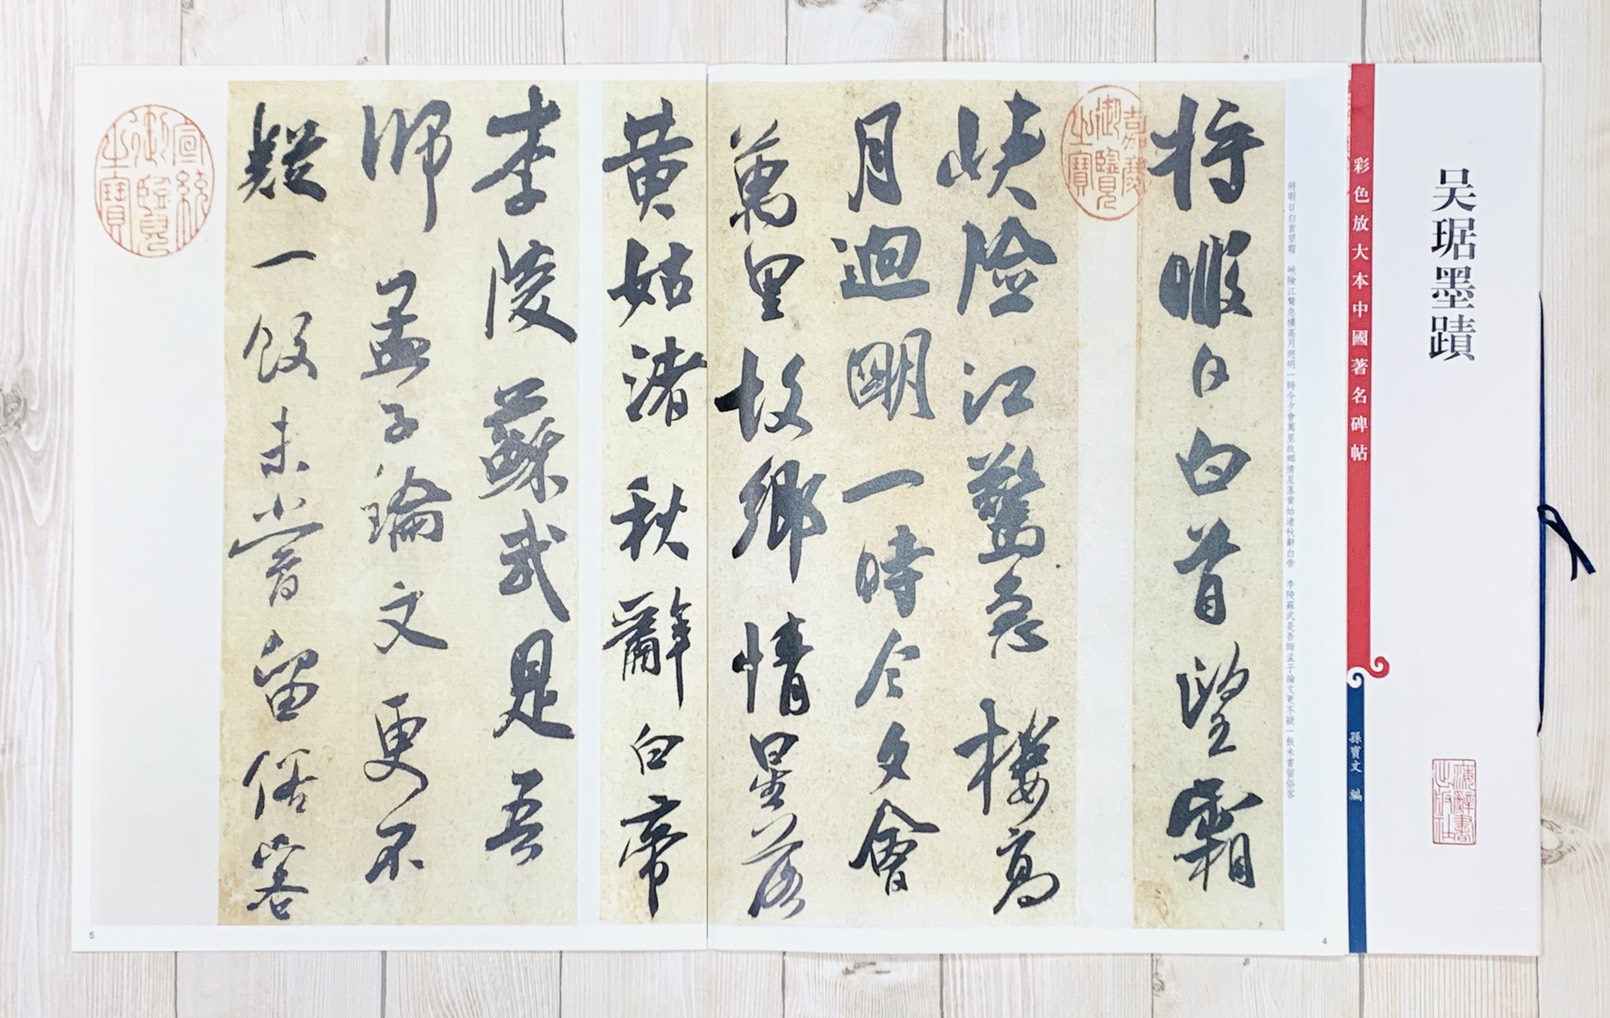 吴琚墨蹟
彩色放大本中國著名碑帖
孫寶文 編
上海辭書出版社
將暇日白首望霜 峽險江驚急樓高月迥明一時今夕會萬里故鄉情星落黃姑渚秋辭白帝 李陵蘇武是吾師孟子論文更不疑一飯未嘗留俗客
將暇日白首望霜
峽險江驚急樓高
月迥明一時今夕會
萬里故鄉情星落
黃姑渚秋辭白帝
李陵蘇武是吾
師孟子論文更不
疑一飯未嘗留俗客
嘉慶御覽之寶
宣統御覽之寶
4
5